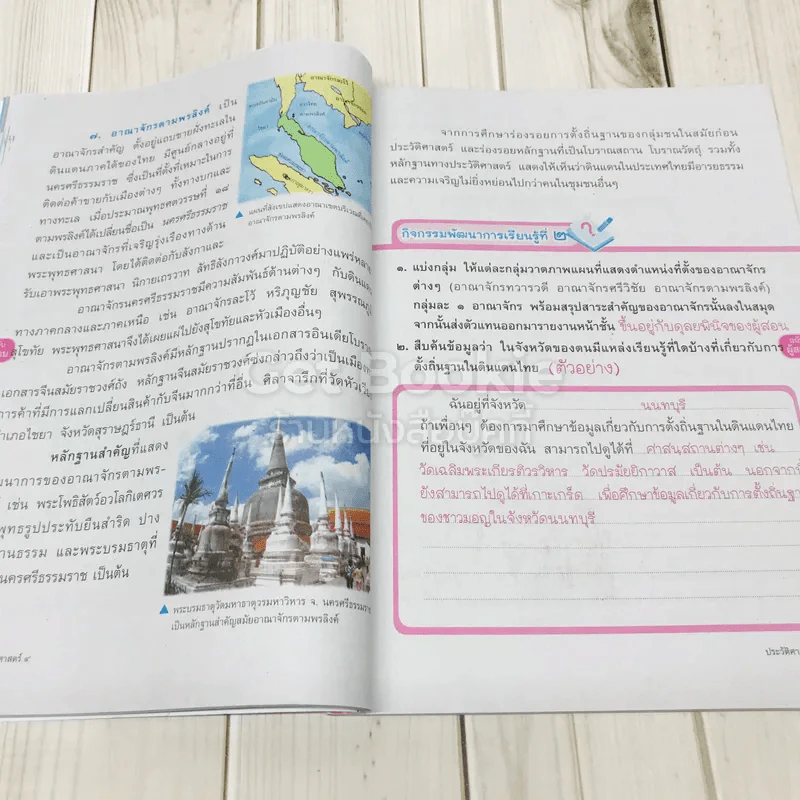 ๗. อาณาจักรตามพรลิงค์ เป็น
อาณาจักรสำคัญ ตั้งอยู่แถบชายฝั่งทะเลใน
ดินแดนภาคใต้ของไทย มีศูนย์กลางอยู่ที่
นครศรีธรรมราช ซึ่งเป็นที่ตั้งที่เหมาะในการ
ติดต่อค้าขายกับเมืองต่างๆ ทั้งทางบกและ
ทางทะเล เมื่อประมาณพุทธศตวรรษที่ ๑๘
ตามพรลิงค์ได้เปลี่ยนชื่อเป็น นครศรีธรรมราช
และเป็นอาณาจักรที่เจริญรุ่งเรืองทางด้าน
พระพุทธศาสนา โดยได้ติดต่อกับลังกาและ
รับเอาพระพุทธศาสนา นิกายเถรวาท ลัทธิลังกาวงศ์มาปฏิบัติอย่างแพร่หลาย
อาณาจักรนครศรีธรรมราชมีความสัมพันธ์ด้านต่างๆ กับดินแดน
ทางภาคกลางและภาคเหนือ เช่น อาณาจักรละโว้ หริภุญชัย สุพรรณภูมิ
สุโขทัย พระพุทธศาสนาจึงได้เผยแผ่ไปยังสุโขทัยและหัวเมืองอื่นๆ
อาณาจักรตามพรลิงค์มีหลักฐานปรากฏในเอกสารอินเดียโบราณ
เอกสารจีนสมัยราชวงศ์ถัง หลักฐานจีนสมัยราชวงศ์ซ่งกล่าวถึงว่าเป็นเมือง
การค้าที่มีการแลกเปลี่ยนสินค้ากับจีนมากกว่าที่อื่น ศิลาจารึกที่วัดหัวเวียง
อำเภอไชยา จังหวัดสุราษฎร์ธานี เป็นต้น
หลักฐานสำคัญที่แสดง
พัฒนาการของอาณาจักรตามพร-
เช่น พระโพธิสัตว์อวโลกิเตศวร
พุทธรูปประทับยืนสำริด ปาง
ธรรม และพระบรมธาตุที่
นครศรีธรรมราช เป็นต้น
อาณาจักรละโว้
อ่าวไทย
▲ แผนที่สังเขปแสดงอาณาเขตบริเวณที่ตั้ง
อาณาจักรตามพรลิงค์
▲ พระบรมธาตุวัดมหาธาตุวรมหาวิหาร จ. นครศรีธรรมราช
เป็นหลักฐานสำคัญสมัยอาณาจักรตามพรลิงค์
ศาสตร์ ๔
จากการศึกษาร่องรอยการตั้งถิ่นฐานของกลุ่มชนในสมัยก่อน
ประวัติศาสตร์ และร่องรอยหลักฐานที่เป็นโบราณสถาน โบราณวัตถุ รวมทั้ง
หลักฐานทางประวัติศาสตร์ แสดงให้เห็นว่าดินแดนในประเทศไทยมีอารยธรรม
และความเจริญไม่ยิ่งหย่อนไปกว่าคนในชุมชนอื่นๆ
กิจกรรมพัฒนาการเรียนรู้ที่ ๒
๑. แบ่งกลุ่ม ให้แต่ละกลุ่มวาดภาพแผนที่แสดงตำแหน่งที่ตั้งของอาณาจักร
ต่างๆ (อาณาจักรทวารวดี อาณาจักรศรีวิชัย อาณาจักรตามพรลิงค์)
กลุ่มละ ๑ อาณาจักร พร้อมสรุปสาระสำคัญของอาณาจักรนั้นลงในสมุด
จากนั้นส่งตัวแทนออกมารายงานหน้าชั้น ขึ้นอยู่กับดุลยพินิจของผู้สอน
๒. สืบค้นข้อมูลว่า ในจังหวัดของตนมีแหล่งเรียนรู้ที่ใดบ้างที่เกี่ยวกับการ
ตั้งถิ่นฐานในดินแดนไทย (ตัวอย่าง)
ฉันอยู่ที่จังหวัด นนทบุรี
ถ้าเพื่อนๆ ต้องการมาศึกษาข้อมูลเกี่ยวกับการตั้งถิ่นฐานในดินแดนไทย
ที่อยู่ในจังหวัดของฉัน สามารถไปดูได้ที่ ศาสนสถานต่างๆ เช่น
วัดเฉลิมพระเกียรติวรวิหาร วัดปรมัยยิกาวาส เป็นต้น นอกจากนี้
ยังสามารถไปดูได้ที่เกาะเกร็ด เพื่อศึกษาข้อมูลเกี่ยวกับการตั้งถิ่นฐาน
ของชาวมอญในจังหวัดนนทบุรี
ประวัติศา
Get Bookie
ร้านหนังสือบุ๊คกี้